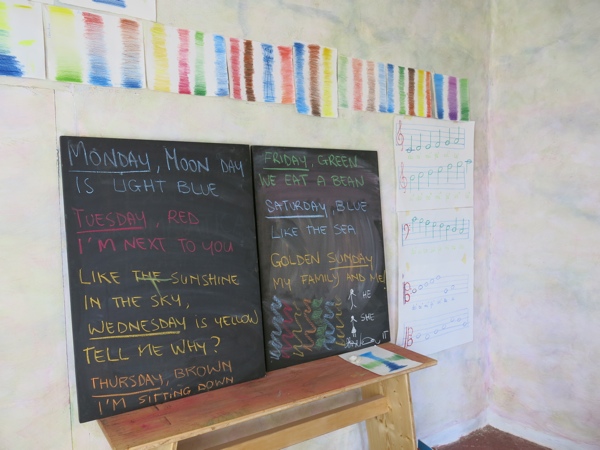 MONDAY, MOON DAY
IS LIGHT BLUE
TUESDAY, RED
I'M NEXT TO YOU
LIKE THE SUNSHINE
IN THE SKY,
WEDNESDAY IS YELLOW
TELL ME WHY?
THURSDAY, BROWN
I'M SITTING DOWN
FRIDAY, GREEN
WE EAT A BEAN
SATURDAY, BLUE
LIKE THE SEA
GOLDEN SUNDAY
MY FAMILY AND ME!
HE
SHE
IT